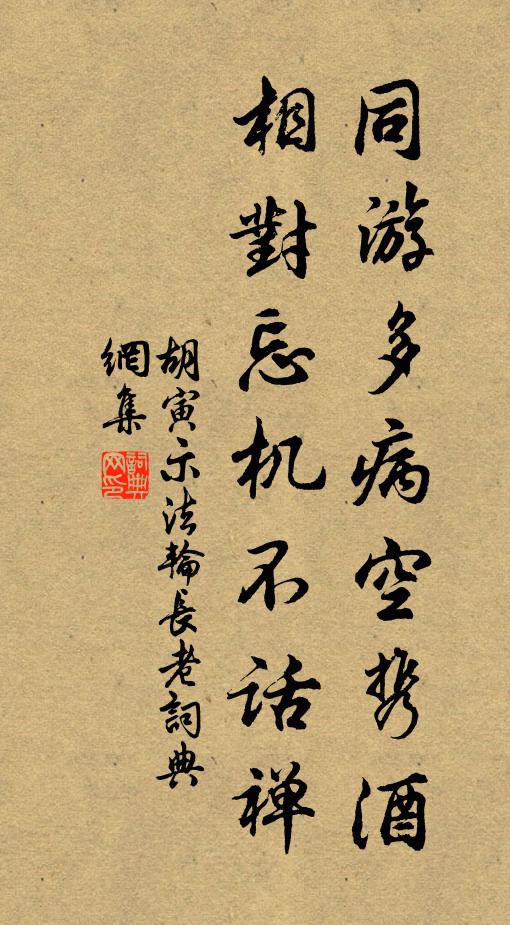 同游多病空携酒
相對忘机不话禅
胡寅示法輪長老詞典
網集
詞典网印